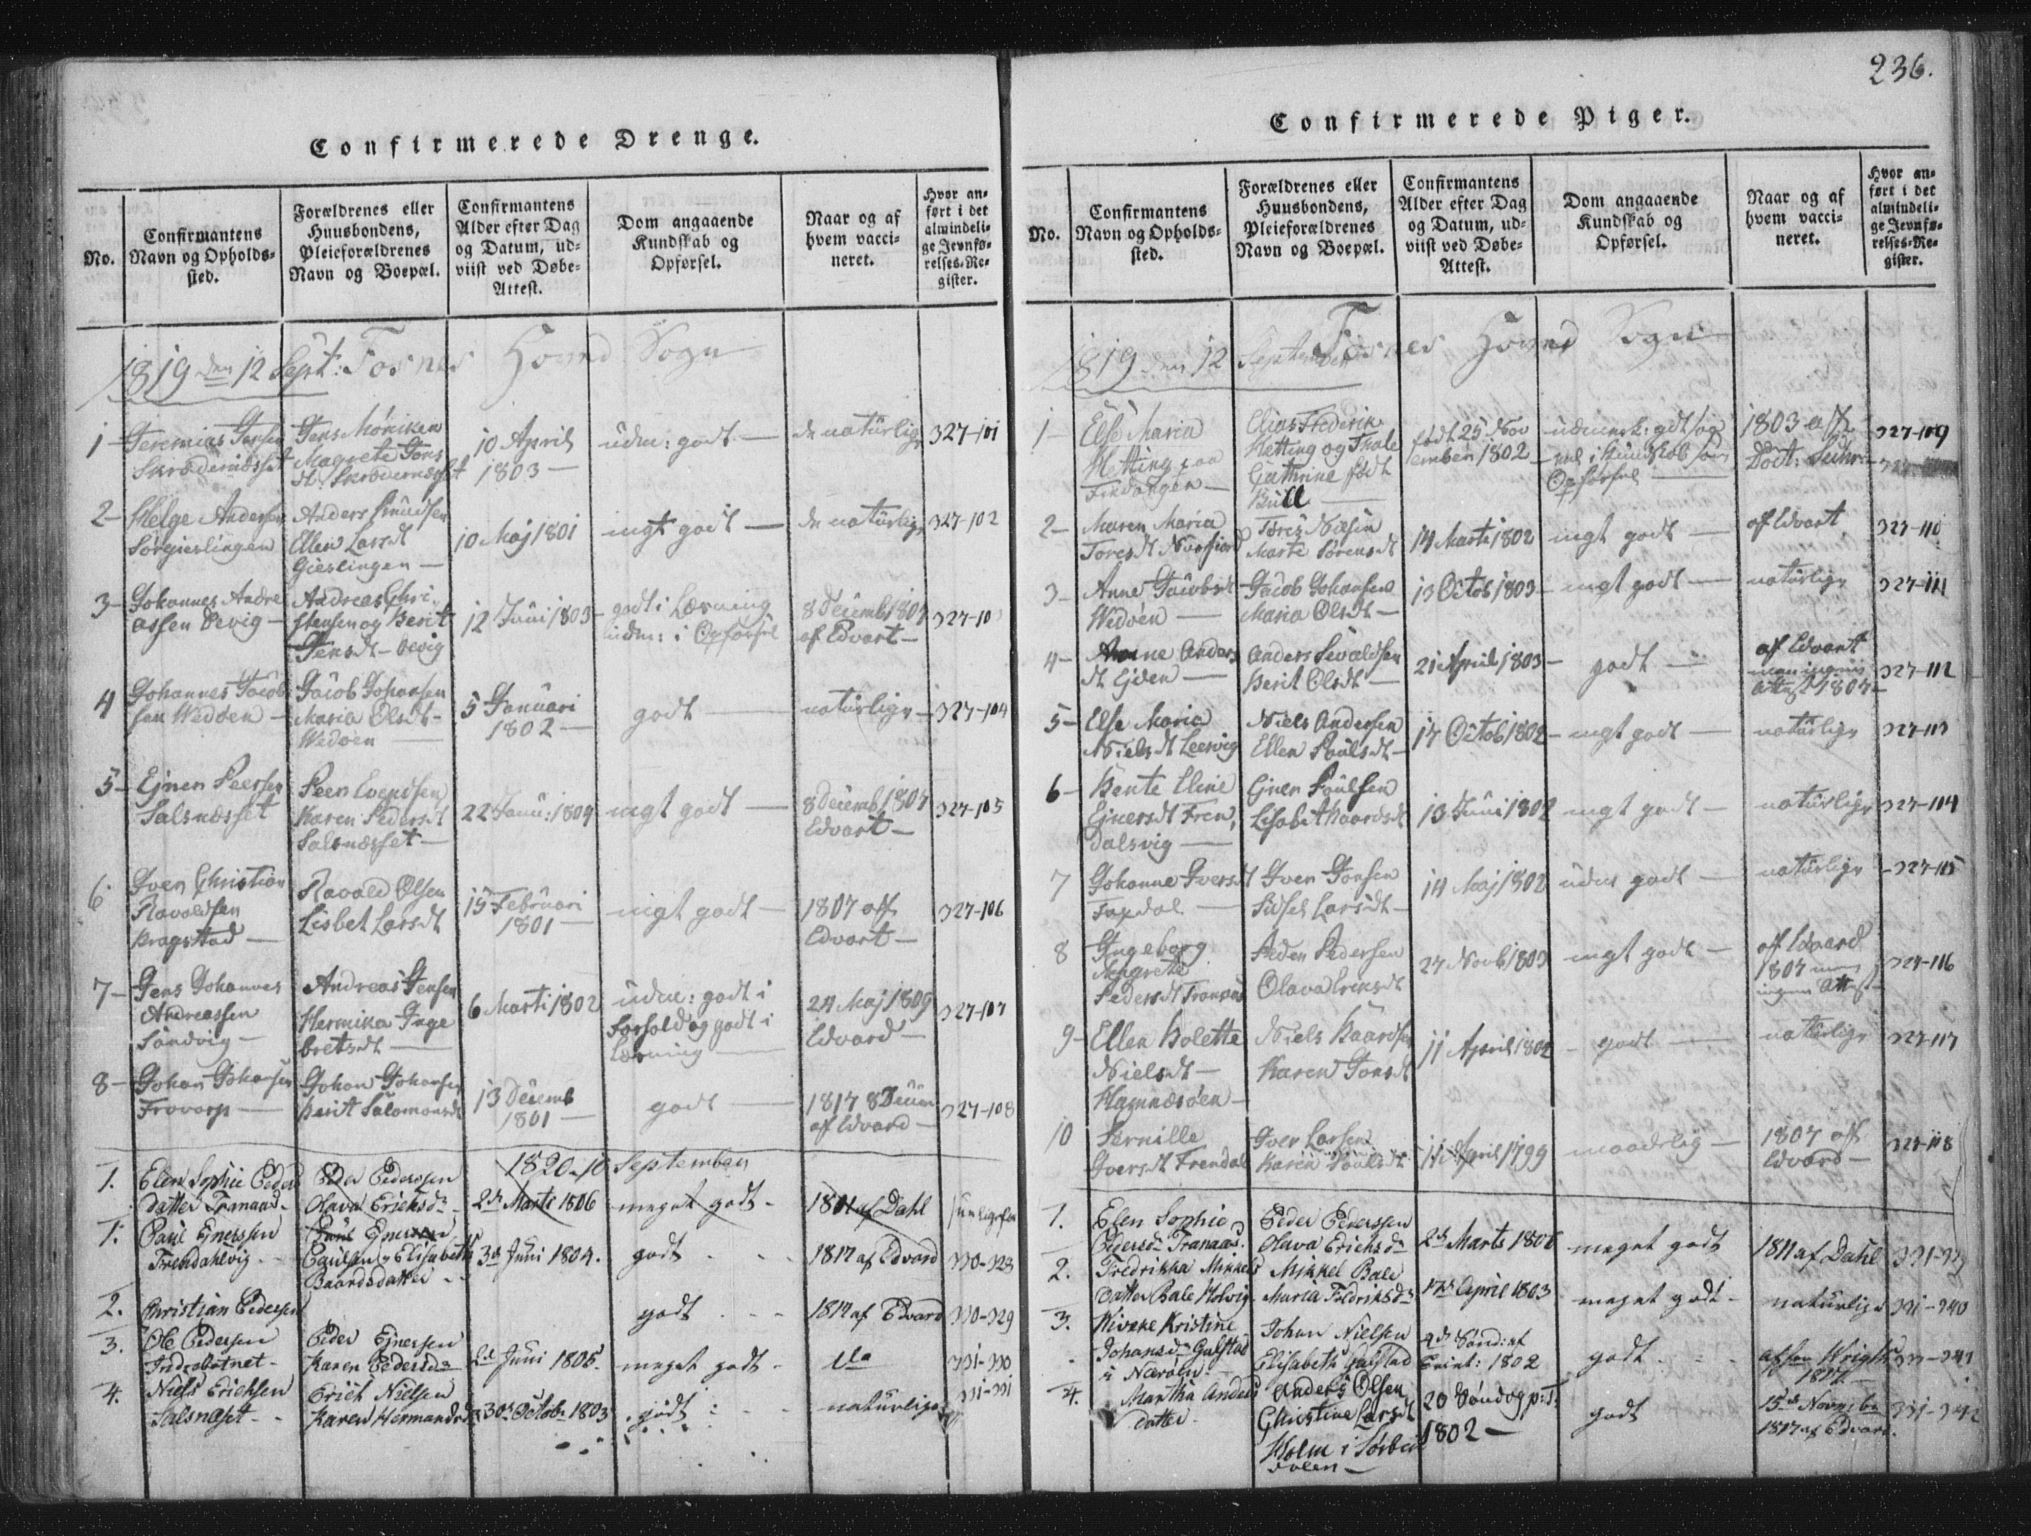 236.
Confirmerede Drenge.
No.
Confirmantens
Navn og Opholds-
sted.
Forældrenes eller
Huusbondens,
Pleieforældrenes
Navn og Boepæl.
Confirmantens
Alder efter Dag
og Datum, ud-
viist ved Døbe-
Attest.
Dom angaaende
Kundskab og
Opførsel.
Naar og af
hvem vacci-
neret.
Hvor an-
ført i det
almindeli-
ge Jevnfø-
relses-Re-
gister.
1819 den 12 Sept: Fosnes Hoved Sogn
1 - Jeremias Jensen
Skrødernæsset
Jens Møniken
Magrete Jons
dt Skrødernæsset
10 April
1803 -
udm: godt -
de naturlige
327-101
2 - Helge Andersen
Sørgieslingen
Anders Knudsen
Ellen Larsdt
Gieslingen -
10 Maj 1801
mgt godt -
de naturlige
327-102
3 - Johannes Andre
assen Devig -
Andreas Chri
stensen og Berit
Jensdt - Devig
12 Juni 1803 -
godt i Læsning
udm: i Opførsel
8 Decemb 1807
af Edvart -
327-103
4 Johannes Jacob
sen Wedøen -
Jacob Johansen
Maria Olsdt -
Wedøen
5 Januari
1802 -
godt -
naturlige -
327-104
5 - Ejner Peersen
Salsnæsset
Peer Evendsen
Karen Pedersdt
Salsnæsset -
22 Janu: 1804
mgt godt -
8 Decemb 1807
Edvart -
327-105
6 Iver Christian
Ravoldsen
Kragstad -
Ravald Olsen
Lisbet Larsdt
15 Februari
1801 -
mgt godt -
1807 aff
Edvart -
327-106
7 - Jens Johannes
Andreassen
Sandvig -
Andreas Jensen
Hermika Inge
bretsdt -
6 Marti 1802
udm: godt i
Forhold og godt i
Læsning -
24 Maj 1809
Edvard -
327-107
8 - Johan Johansen
Frovarp -
Johan Johansen
Berit Salomonsdt
13 Decemb
1801 -
godt -
1817 8 Decem
af Edvard -
327-108
1820 - 10 September
1. Elen Sophie Peders
datter Tranaas -
Peder Pederssen
Olava Ericksdr
2dn Marts 1806
meget godt -
1801 af Dahl
1. Paul Ejnerssen
Frendahlvig -
Paul Ejnersen
Paulsen, Elisabeth
Baardsdatter -
3de Juni 1804.
godt -
1817 af Edvard
330-328
2. Christian Pedersen
godt -
1817 af Edvard
330-329
3. Ole Pedersen
Indrebotnet -
Peder Ejnerssen
Karen Pedersdr
2de Juni 1805.
meget godt -
do
331-330
4. Niels Ericksen
Salsnæsset -
Erick Nielsen
Karen Hermansdr
30te Octobr 1803
godt -
naturlige
331-331
Confirmerede Piger.
No.
Confirmantens
Navn og Opholds-
sted.
Forældrenes eller
Huusbondens,
Pleieforældrenes
Navn og Boepæl.
Confirmantens
Alder efter Dag
og Datum, ud-
viist ved Døbe-
Attest.
Dom angaaende
Kundskab og
Opførsel.
Naar og af
hvem vacci-
neret.
Hvor an-
ført i det
almindeli-
ge Jevnfø-
relses-Re-
gister.
1819 den 12 September Fosnes Hoved Sogn
1 - Else Maria
Hetting paa
Findangen -
Elias Frederik
Hetting og Thale
Cathrine født
Bull -
født 25 Nov
ember 1802 -
udmerk: gdt saa
vel i Kundskab som
Opførsel -
1803 aff
327-109
2 - Maren Maria
Toresdt
Tøres Næsin
Marte Sørensdt
14 Marti 1802
mgt godt -
af Edvart
327-110
3 - Anne Jacobsdt
Wedøen -
Jacob Johansen
Maria Olsdt -
13 Octob 1803 -
mgt godt -
naturlige
327-111
4 - Anne Anders
dt Ejden -
Anders Sevaldsen
Berit Olsdt -
21 April 1803 -
godt -
af Edvart
men ingen
attest 1807 -
327-112
5 - Else Maria
Nielsdt Leervig
Niels Andersen
Ellen Poulsdt -
17 Octob 1802 -
mgt godt -
naturlige
327-113
6 - Bente Eline
Ejnersdt Fren,
dalsvig -
Ejner Poulsen
Lisabit Baardsdt
13 Juni 1802
mgt godt -
naturlige
327-114
7 Johanne Iversdt
Faxdal -
Iver Jonsen
Sidsel Larsdt -
14 Maj 1802
udm godt -
naturlige
327-115
8 Ingeborg
Magrete
Pedersdt Tranaas
Peder Pedersen
Olava Ericsdt
27 Novb 1803
mgt godt -
aff Edvard
1807 men
ingen attest -
327-116
9 - Ellen Bolette
Nielsdt -
Hamnesøen -
Niels Baardsen
Karen Jonsdt
11 April 1802
- godt -
naturlige
327-117
10 Pernille
Iversdt Frendal
Iver Larsen
Karen Poulsdt
14 April 1799
maadelig -
1807 aff
Edvard -
327-118
1. Elen Sophie
Pedersdr Tranaas.
Peder Pederssen
Olava Ericksdr
2de Marts 1806
meget godt
1811 af Dahl
331-339
2. Fredrikka Mikkels
datter Bale Holvig -
Mikkel Bale
Maria Fredriksdr
17de April 1803
meget godt -
naturlige
331-340
3. Wiveke Kristine
Johansdr Galstad
i Nærøen.
Johan Nielsen
Elisabeth Galstad
4de Sønd: ef
Trinit: 1802
godt -
af Wright
1817
331-341
4. Martha Anders
datter
Anders Olsen
Christine Larsdt
Holm i Sørbei
dalen -
20 Søndag p: T.
1802 -
godt
15de Novembr
1817 af Edvard.
331-342